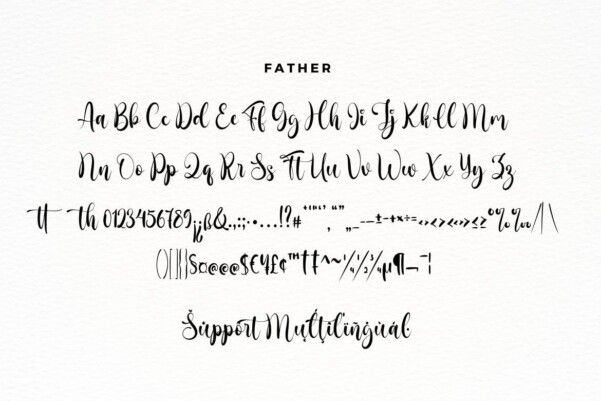 FATHER
Aa Bb Cc Dd Ee Ff Gg Hh Ii Jj Kk Ll Mm
Nn Oo Pp Qq Rr Ss Tt Uu Vv Ww Xx Yy Zz
tt th 0123456789¡¿ß&.,:;·•…!?#
()[]{}§¤@@@$€¥£¢™†‡^~¼½¾µ¶¬¯¦
Support Multilingual